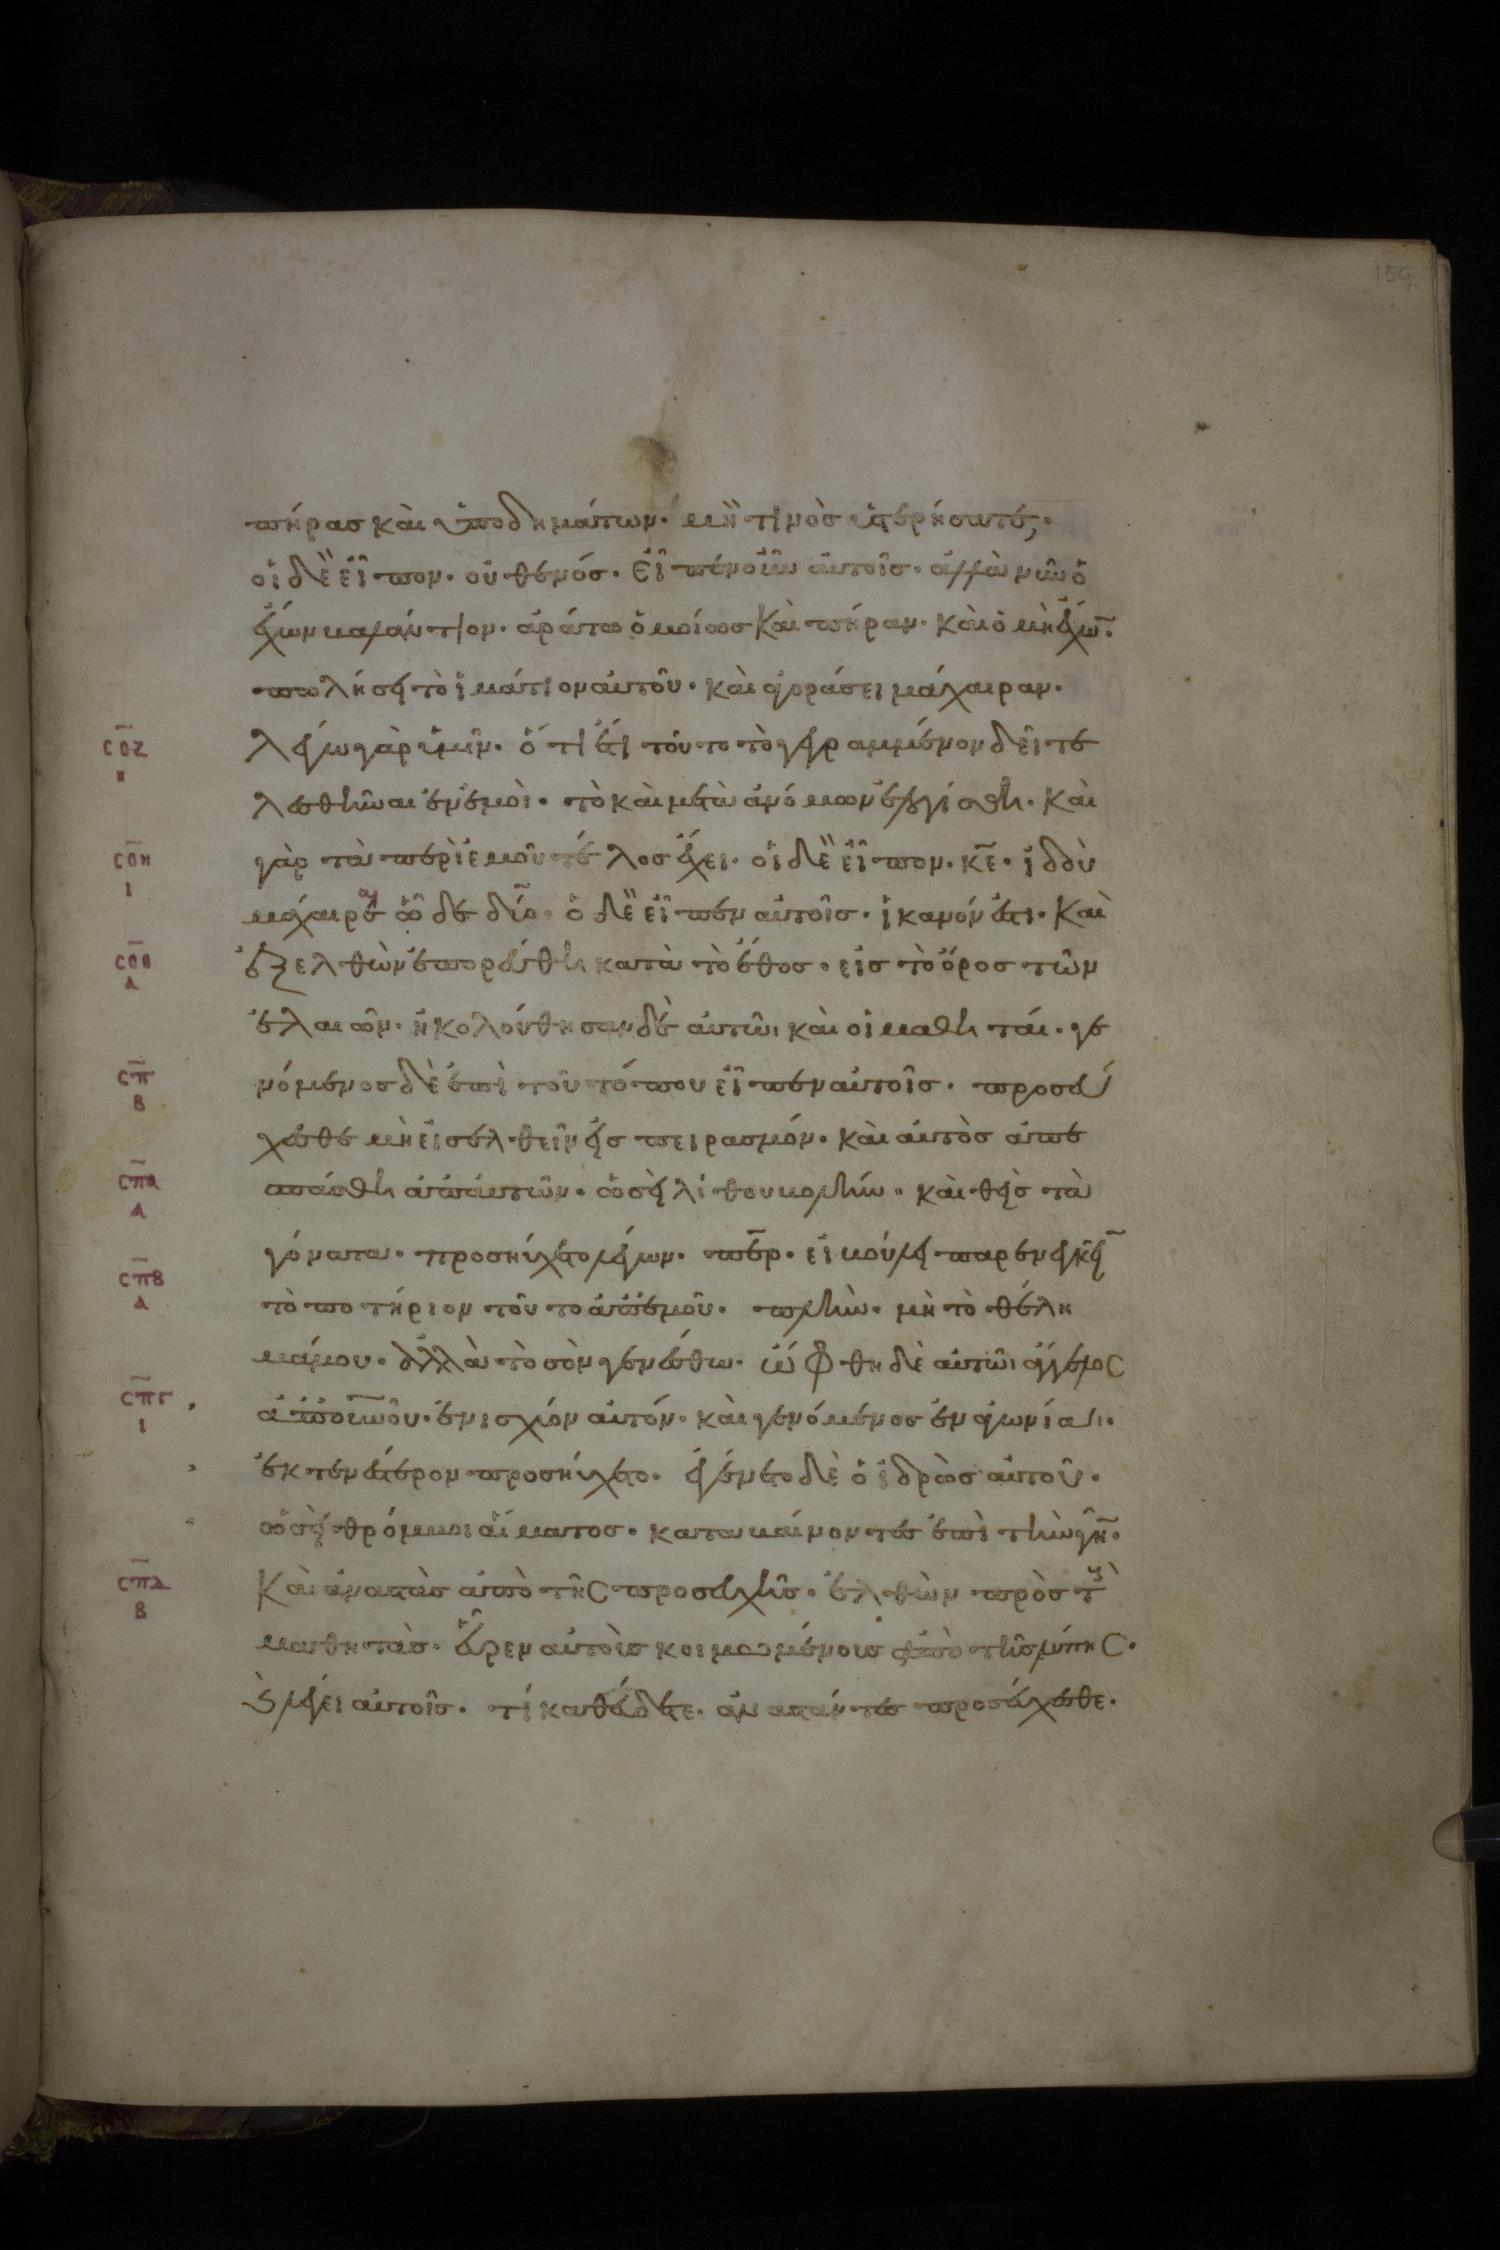 159
πήρας καὶ ὑποδημάτων· μὴ τινὸς ὑστερήσατε;
οἱ δὲ εἶπον· οὐθενός· Εἶπεν οὖν αὐτοῖς· ἀλλὰ νῦν ὁ
ἔχων βαλάντιον· ἀράτω ὁμοίως Καὶ πήραν· καὶ ὁ μὴ ἔχω̅·
πωλήσει τὸ ἱμάτιον αὐτοῦ· καὶ ἀγοράσει μάχαιραν·
COZ λέγω γὰρ ὑμῖν· ὅτι ἔτι τοῦτο τὸ γεγραμμένον δεῖ τε
H λεσθῆναι ἐν ἐμοὶ· τὸ καὶ μετὰ ἀνόμων ἐλογίσθη· Καὶ
COH γὰρ τὰ περὶ ἐμοῦ τέλος ἔχει· οἱ δὲ εἶπον· κ̅ε̅· ἰδοὺ
I μάχαιραι ὧδε δύο· ὁ δὲ εἶπεν αὐτοῖς· ἱκανόν ἐστι· Καὶ
COΘ ἐξελθὼν ἐπορεύθη κατὰ τὸ ἔθος· εἰς τὸ ὄρος τῶν
A ἐλαιῶν· ἠκολούθησαν δὲ αὐτῶι καὶ οἱ μαθηταί· γε
CΠ νόμενος δὲ ἐπὶ τοῦ τόπου εἶπεν αὐτοῖς· προσεύ
B χεσθε μὴ εἰσελθεῖν εἰς πειρασμόν· καὶ αὐτὸς ἀπε
CΠA σπάσθη ἀπ' αὐτῶν· ὡσεὶ λίθου βολήν· καὶ θεὶς τὰ
A γόνατα· προσηύχετο λέγων· π̅ε̅ρ· εἰ βούλει παρενεγκεῖ̅
CΠB τὸ ποτήριον τοῦτο ἀπ' ἐμοῦ· πλὴν· μὴ τὸ θέλη
A μά μου· ἀλλὰ τὸ σὸν γενέσθω· ὤφθη δὲ αὐτῶι ἄγγελος
CΠΓ ἀπ' ο̅υ̅ν̅οῦ· ἐνισχύων αὐτόν· καὶ γενόμενος ἐν ἀγωνίαι·
I ἐκτενέστερον προσηύχετο· ἐγένετο δὲ ὁ ἱδρὼς αὐτοῦ·
ὡσεὶ θρόμβοι αἵματος· καταβαίνοντες ἐπὶ τὴν γῆ̅·
CΠΔ Καὶ ἀναστὰς ἀπὸ τῆς προσευχῆς· ἐλθὼν πρὸς τοὺς
B μαθητὰς· εὗρεν αὐτοὺς κοιμωμένους ἀπὸ τῆς λύπης·
καὶ λέγει αὐτοῖς· τί καθεύδετε· ἀναστάντες προσεύχεσθε·